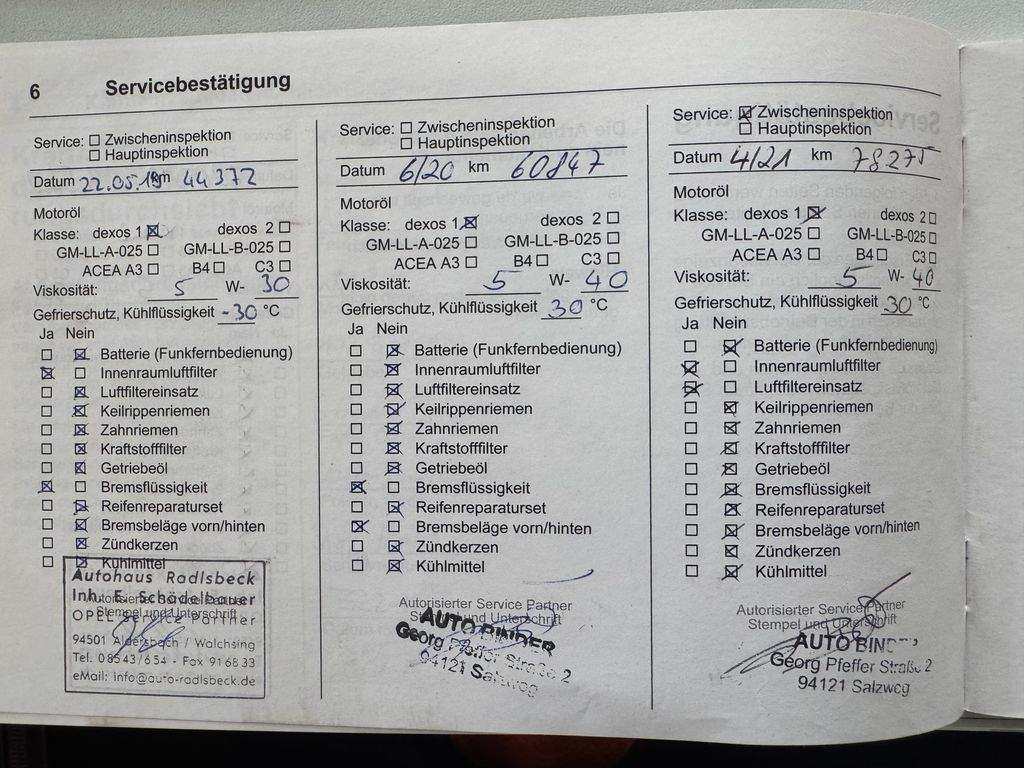 6 Servicebestätigung
Service: ☐ Zwischeninspektion
☐ Hauptinspektion
Datum 22.05.19 km 44 372
Motoröl
Klasse: dexos 1 ☒ dexos 2 ☐
GM-LL-A-025 ☐ GM-LL-B-025 ☐
ACEA A3 ☐ B4 ☐ C3 ☐
Viskosität: 5 W- 30
Gefrierschutz, Kühlflüssigkeit -30 °C
Ja Nein
☐ ☒ Batterie (Funkfernbedienung)
☒ ☐ Innenraumluftfilter
☐ ☒ Luftfiltereinsatz
☐ ☒ Keilrippenriemen
☐ ☒ Zahnriemen
☐ ☒ Kraftstofffilter
☐ ☒ Getriebeöl
☒ ☐ Bremsflüssigkeit
☐ ☒ Reifenreparaturset
☐ ☒ Bremsbeläge vorn/hinten
☐ ☒ Zündkerzen
☐ ☒ Kühlmittel
Autohaus Radlsbeck
Inh. E. Schädelbauer
Autorisierter Service Partner
Stempel und Unterschrift
OPEL Service Partner
94501 Aldersbach / Walchsing
Tel. 08543/654 - Fax 916833
eMail: info@auto-radlsbeck.de
Service: ☐ Zwischeninspektion
☐ Hauptinspektion
Datum 6/20 km 60847
Motoröl
Klasse: dexos 1 ☒ dexos 2 ☐
GM-LL-A-025 ☐ GM-LL-B-025 ☐
ACEA A3 ☐ B4 ☐ C3 ☐
Viskosität: 5 W- 40
Gefrierschutz, Kühlflüssigkeit 30 °C
Ja Nein
☐ ☒ Batterie (Funkfernbedienung)
☐ ☒ Innenraumluftfilter
☐ ☒ Luftfiltereinsatz
☐ ☒ Keilrippenriemen
☐ ☒ Zahnriemen
☐ ☒ Kraftstofffilter
☐ ☒ Getriebeöl
☒ ☐ Bremsflüssigkeit
☐ ☒ Reifenreparaturset
☒ ☐ Bremsbeläge vorn/hinten
☐ ☒ Zündkerzen
☐ ☒ Kühlmittel
Autorisierter Service Partner
Stempel und Unterschrift
AUTO BINDER
Georg Pfeffer Straße 2
94121 Salzweg
Service: ☒ Zwischeninspektion
☐ Hauptinspektion
Datum 4/21 km 78275
Motoröl
Klasse: dexos 1 ☒ dexos 2 ☐
GM-LL-A-025 ☐ GM-LL-B-025 ☐
ACEA A3 ☐ B4 ☐ C3 ☐
Viskosität: 5 W- 40
Gefrierschutz, Kühlflüssigkeit 30 °C
Ja Nein
☐ ☒ Batterie (Funkfernbedienung)
☒ ☐ Innenraumluftfilter
☒ ☐ Luftfiltereinsatz
☐ ☒ Keilrippenriemen
☐ ☒ Zahnriemen
☐ ☒ Kraftstofffilter
☐ ☒ Getriebeöl
☐ ☒ Bremsflüssigkeit
☐ ☒ Reifenreparaturset
☐ ☒ Bremsbeläge vorn/hinten
☐ ☒ Zündkerzen
☐ ☒ Kühlmittel
Autorisierter Service Partner
Stempel und Unterschrift
AUTO BINDER
Georg Pfeffer Straße 2
94121 Salzweg